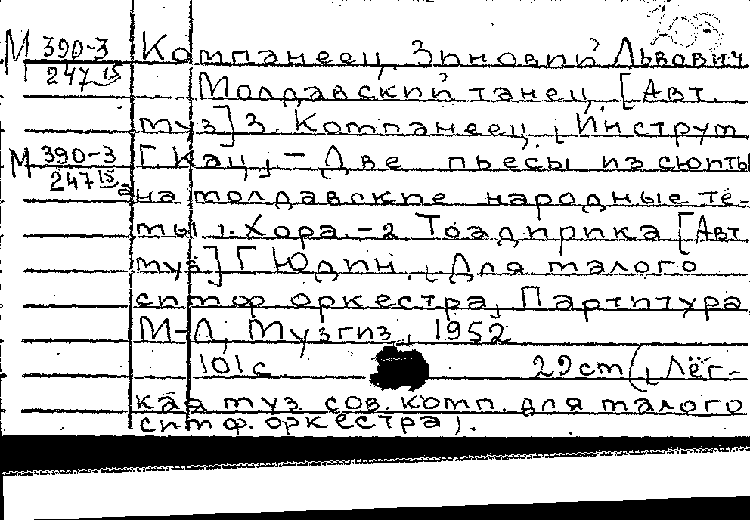 М 390-3/247 15 Компанеец, Зиновий Львович
Молдавский танец. [Авт.
муз.] З. Компанеец, Инструм.
М 390-3/247 15а Г. Кац, - Две пьесы из сюиты
на молдавские народные те-
мы 1. Хора. - 2. Тоадирика [Авт.
муз.] Г. Юдин. Для малого
симф. оркестра, Партитура
М-Л, Музгиз, 1952
101 с 29 см (, Лёг-
кая муз. сов. комп. для малого
симф. оркестра).